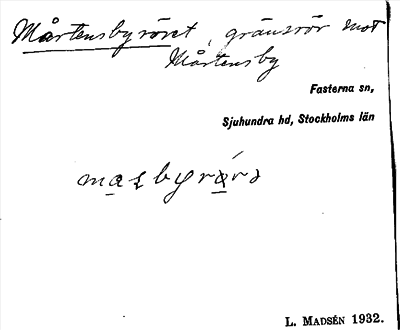 Mårtensbyröret, gränsrör mot
Mårtensby
Fasterna sn,
Sjuhundra hd, Stockholms län
L. MADSÉN 1932.